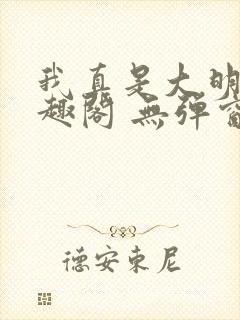 我真是大明
趣阁 無弹窗
德安東尼